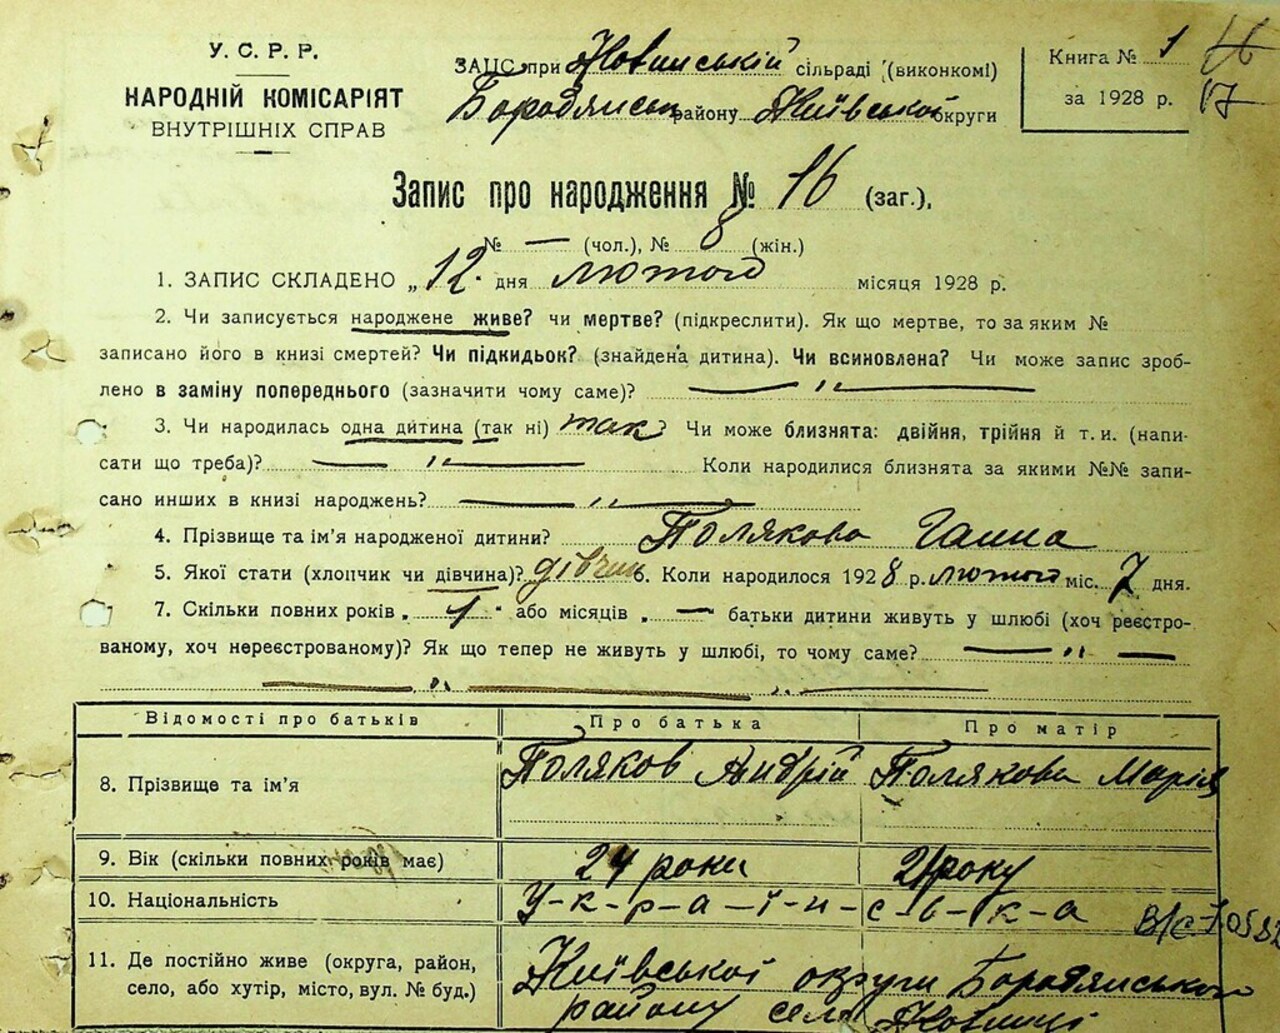 У. С. Р. Р.
НАРОДНІЙ КОМІСАРІЯТ
ВНУТРІШНІХ СПРАВ
ЗАГС при Новинській сільраді (виконкомі)
Бородянськ району Київської округи
Книга № 1
за 1928 р.
17
Запис про народження № 16 (заг.),
№ — (чол.), № 8 (жін.)
1. ЗАПИС СКЛАДЕНО „12" дня лютого місяця 1928 р.
2. Чи записується народжене живе? чи мертве? (підкреслити). Як що мертве, то за яким №
записано його в книзі смертей? Чи підкидьок? (знайдена дитина). Чи всиновлена? Чи може запис зроб-
лено в заміну попереднього (зазначити чому саме)? — " —
3. Чи народилась одна дитина (так ні) так? Чи може близнята: двійня, трійня й т. и. (напи-
сати що треба)? — " — Коли народилися близнята за якими №№ запи-
сано инших в книзі народжень? — " —
4. Прізвище та ім'я народженої дитини? Полякова Ганна
5. Якої стати (хлопчик чи дівчина)? дівчин 6. Коли народилося 1928 р. лютого міс. 7 дня.
7. Скільки повних років „ 1 " або місяців „ — " батьки дитини живуть у шлюбі (хоч реєстро-
ваному, хоч нереєстрованому)? Як що тепер не живуть у шлюбі, то чому саме? — " —
— " — " —
Відомості про батьків Про батька Про матір
8. Прізвище та ім'я Поляков Андрій Полякова Марія
9. Вік (скільки повних років має) 24 роки 21 року
10. Національність У-к-р-а-ї-н-с-ь-к-а
11. Де постійно живе (округа, район, Київської округи Бородянського
село, або хутір, місто, вул. № буд.) району село Новиці